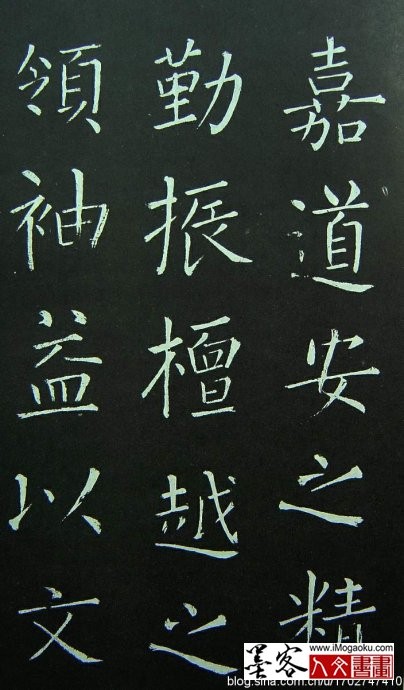 嘉道安之精
勤振檀越之
領袖益以文
www.iMogaoku.com
墨客
人文書畫
blog.sina.com.cn/u/1702747410